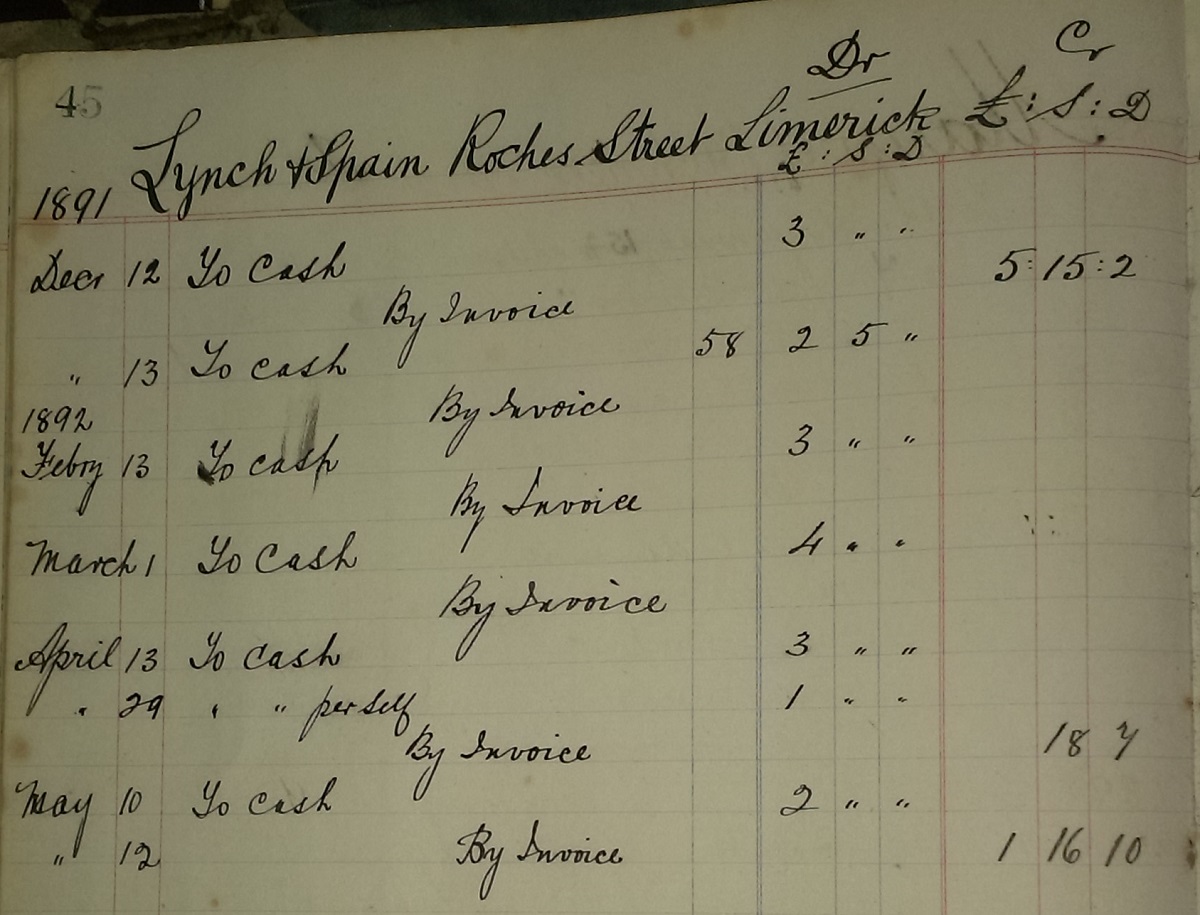 45
Dr Cr
Lynch & Spain Roches Street Limerick £ : S : D
1891 £ : S : D
Decr 12 To Cash 3 " "
By Invoice 5 : 15 : 2
" 13 To Cash 58 2 5 "
1892 By Invoice
Febry 13 To cash 3 " "
By Invoice
March 1 To Cash 4 " "
By Invoice
April 13 To Cash 3 " "
" 29 " " per self 1 " "
By Invoice 18 7
May 10 To Cash 2 " "
" 12 By Invoice 1 16 10